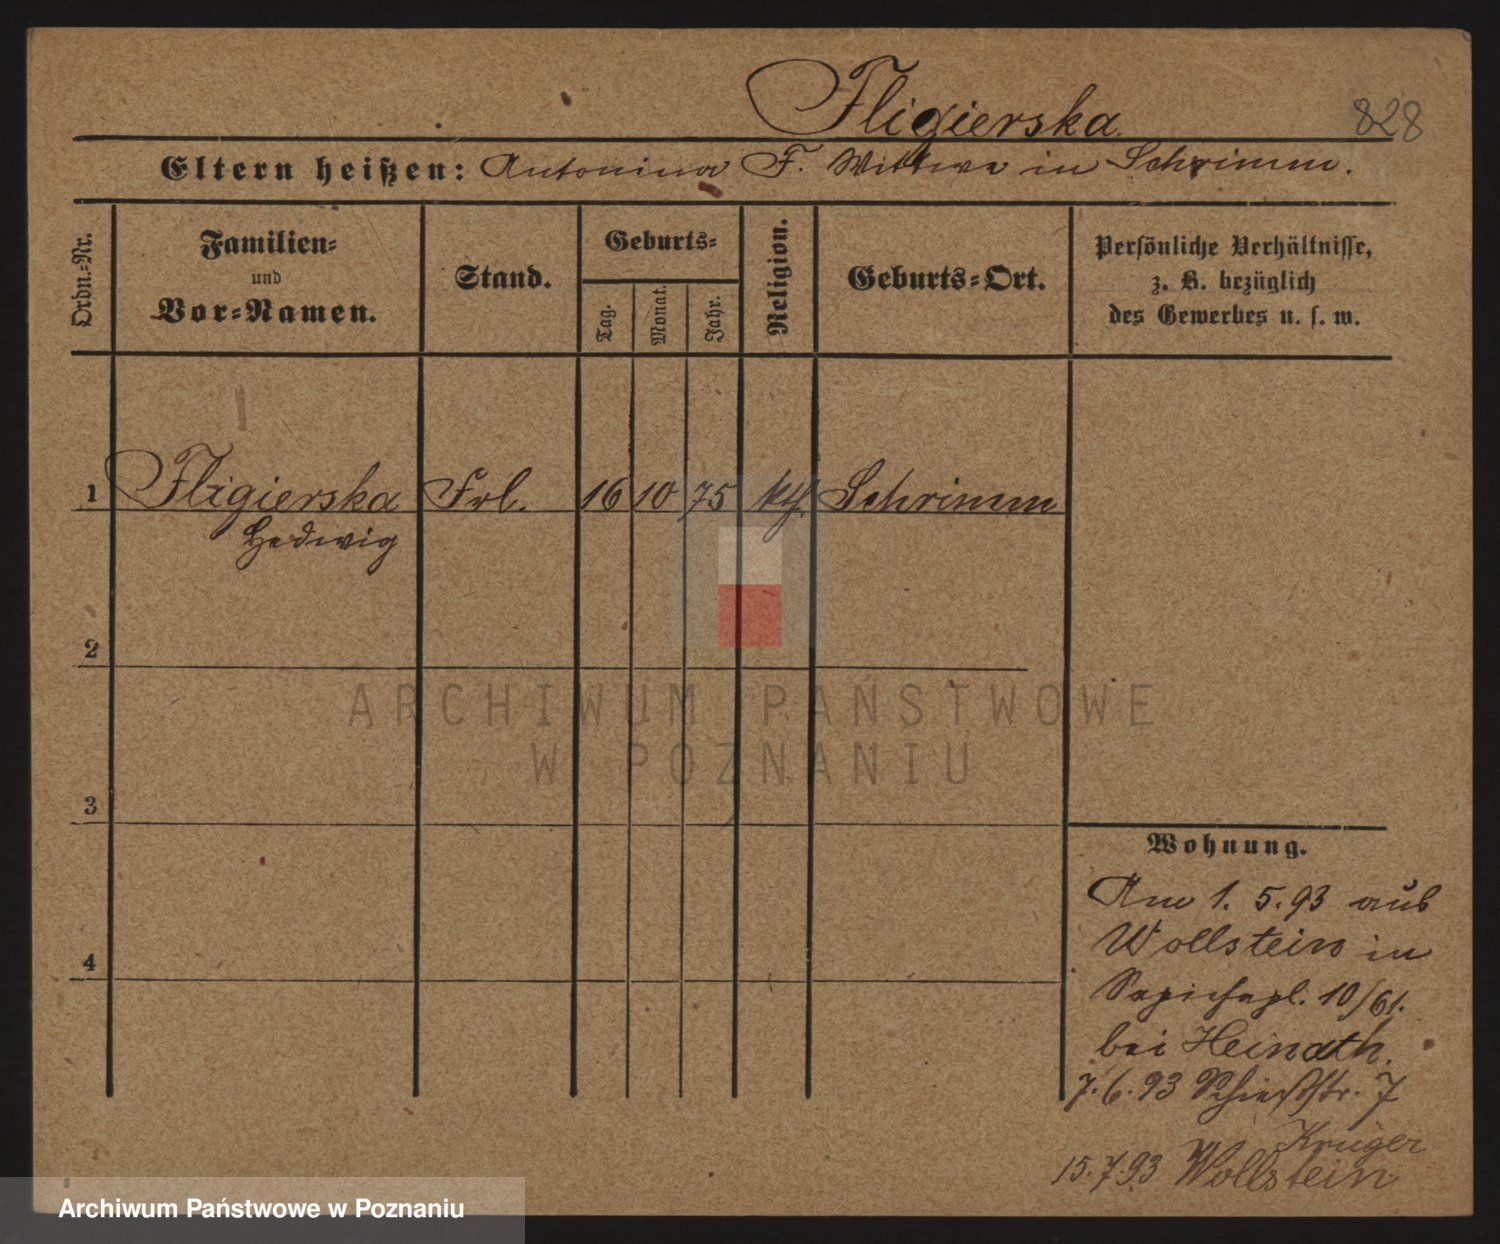 Fligierska
828
Eltern heißen: Antonina F. Wittwe in Schrimm.
Ordn.-Nr.
Familien-
und
Vor-Namen.
Stand.
Geburts-
Tag.
Monat.
Jahr.
Religion.
Geburts-Ort.
Persönliche Verhältnisse,
z. B. bezüglich
des Gewerbes u. s. w.
1 Fligierska Frl. 16 10 75 kth. Schrimm
Hedwig
2
3
4
Wohnung.
Am 1. 5. 93 aus
Wollstein in
Sapiehapl. 10/61.
bei Heinath.
7. 6. 93 Schießstr. 7
Krüger
15. 7. 93 Wollstein
ARCHIWUM PAŃSTWOWE
W POZNANIU
Archiwum Państwowe w Poznaniu